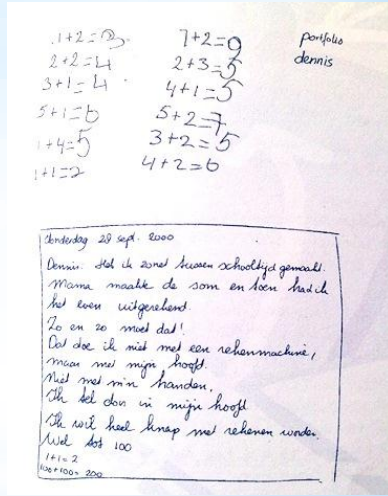 1+2=3
2+2=4
3+1=4
5+1=6
1+4=5
1+1=2
7+2=9
2+3=5
4+1=5
5+2=7
3+2=5
4+2=6
portfolio
dennis
donderdag 28 sept. 2000
Dennis: Heb ik zonet tussen schooltijd gemaakt.
Mama maakte de som en toen had ik
het even uitgerekend.
Zo en zo moet dat!
Dat doe ik niet met een rekenmachine,
maar met mijn hoofd.
Niet met m'n handen.
Ik tel dan in mijn hoofd
Ik wil heel knap met rekenen worden.
Wel tot 100
1+1=2
100+100=200